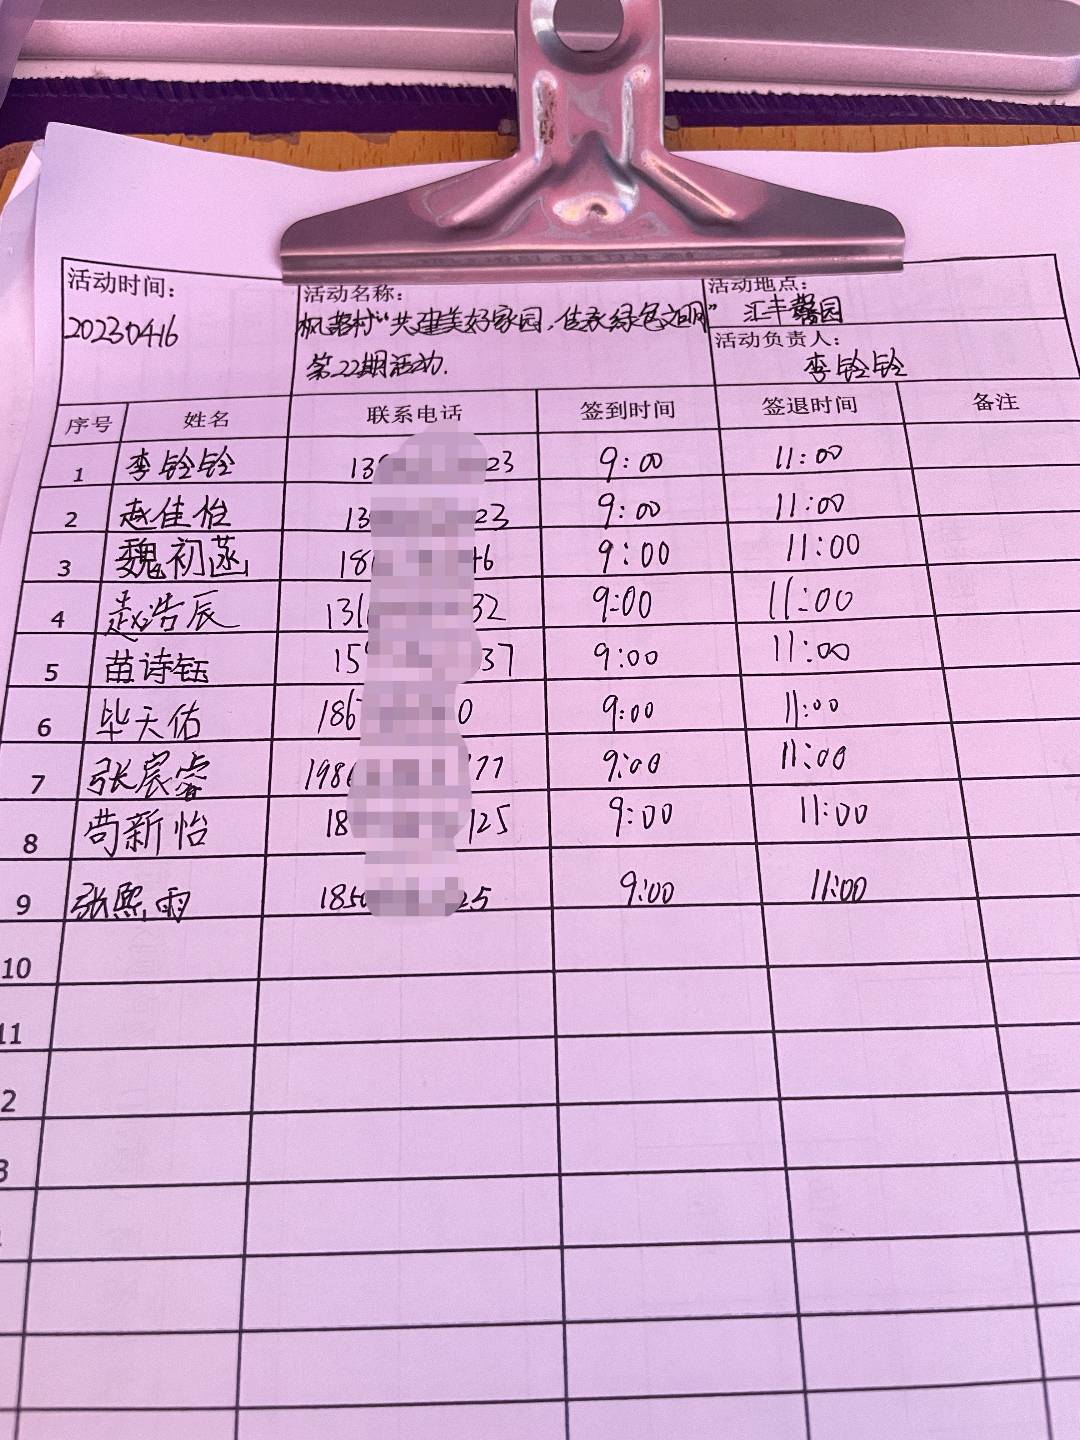 活动时间：
20230416
活动名称：
枫路村“共建美好家园，传承绿色文明”
第22期活动.
活动地点：
汇丰馨园
活动负责人：
李铨铨
序号 姓名 联系电话 签到时间 签退时间 备注
1 李铨铨 13 23 9:00 11:00
2 赵佳怡 13 23 9:00 11:00
3 魏初菡 18 46 9:00 11:00
4 赵浩辰 131 32 9:00 11:00
5 苗诗钰 15 37 9:00 11:00
6 毕天佑 186 0 9:00 11:00
7 张宸睿 198 77 9:00 11:00
8 苟新怡 18 125 9:00 11:00
9 张熙雨 185 25 9:00 11:00
10
11
2
3